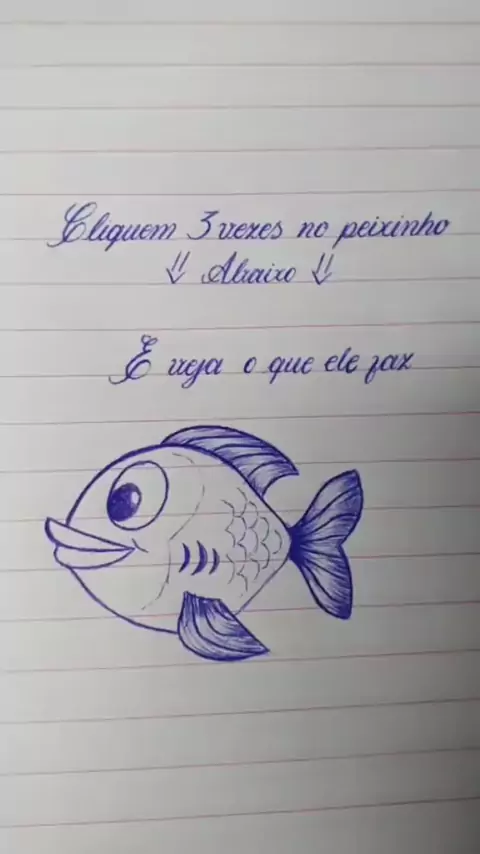 Cliquem 3 vezes no peixinho
⇓ Abaixo ⇓
E veja o que ele faz